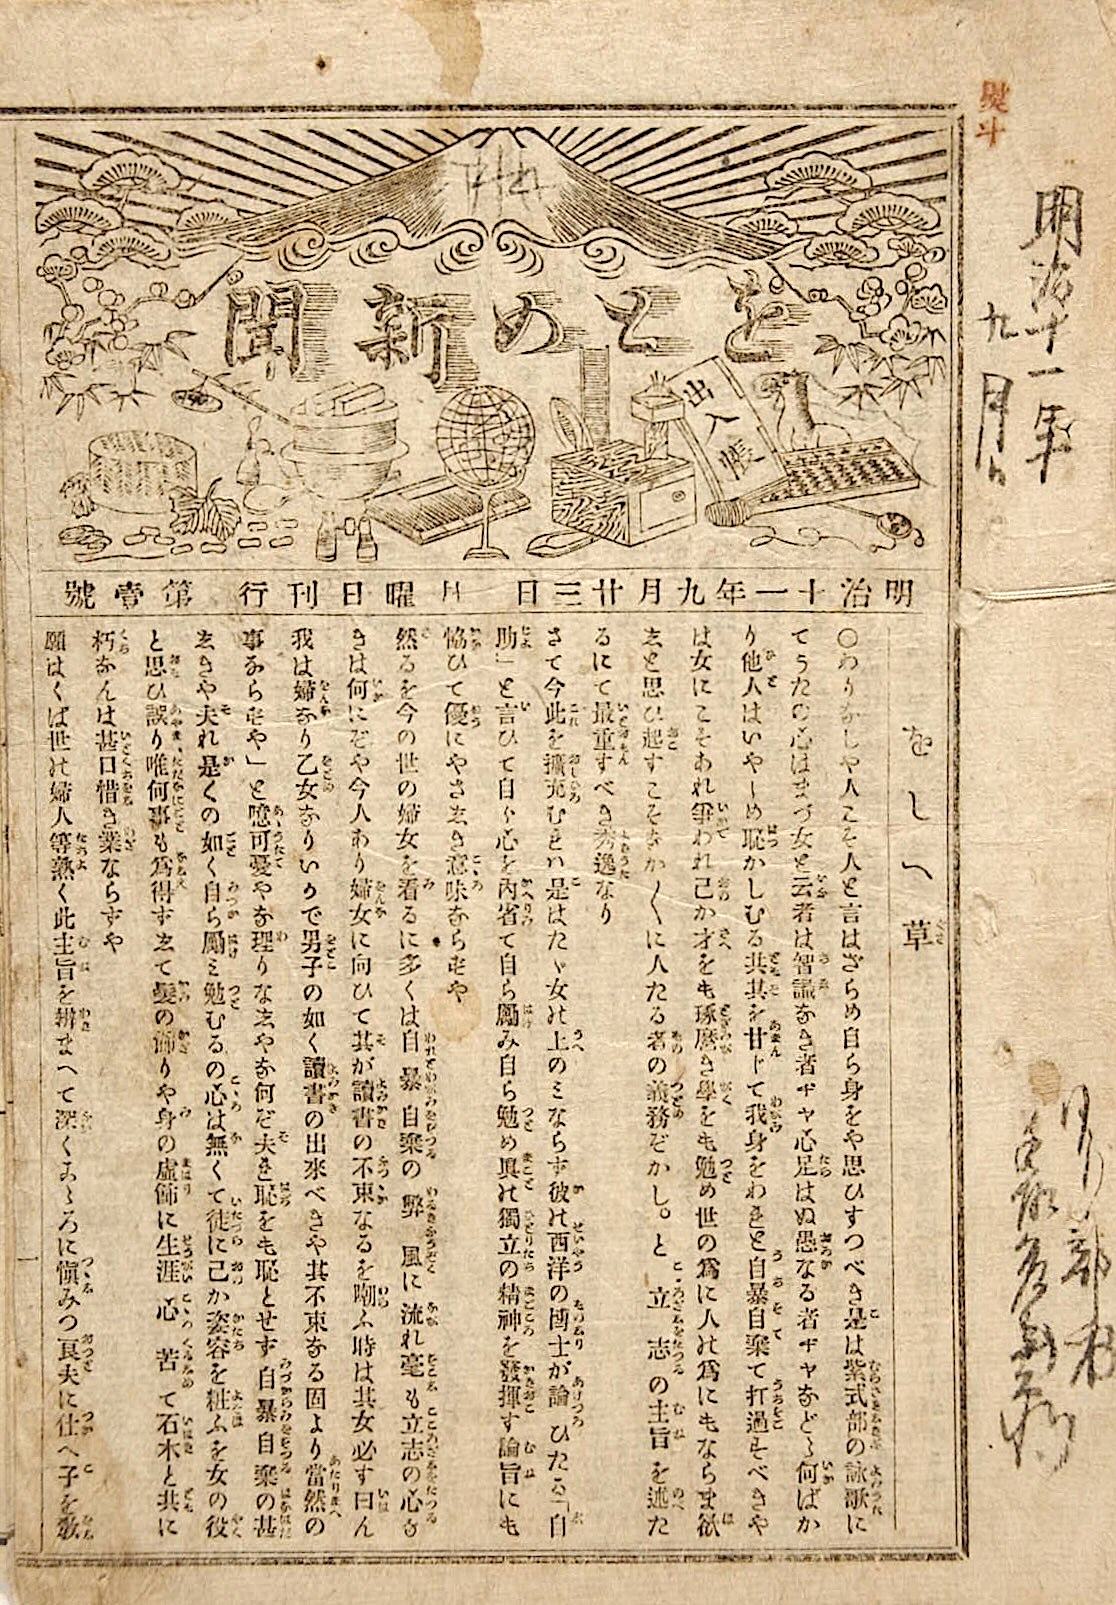 熨斗
明治十一年
九月
をとめ新聞
出入帳
明治十一年九月廿三日 月曜日刊行 第壹號
をしへ草
〇わりなしや人こそ人と言はざらめ自ら身をや思ひすつべき是は紫式部の詠歌に
てうたの心はまづ女と云者は智識なき者ヂヤ心足はぬ愚なる者ヂヤなど〻何ばか
り他人はいやしめ恥かしむる共其を甘ドて我身をわきと自暴自棄て打過をべきや
は女にこそあれ爭われ己か才をも琢磨き學をも勉め世の爲に人の爲にもならま欲
ゑと思ひ起すこそなか〱に人たる者の義務ぞかし。と立志の主旨を述た
るにて最重すべき秀逸なり
さて今此を擴充むをハ是はたゞ女の上のミならす彼の西洋の博士が論ひたる「自
助」と言ひて自ら心を內省て自ら勵み自ら勉め眞の獨立の精神を發揮す論旨にも
恊ひて優にやさゑき意味ならをや
然るを今の世の婦女を看るに多くは自暴自棄の弊風に流れ毫も立志の心な
きは何にぞや今人あり婦女に向ひて其が讀書の不束なるを嘲ふ時は其女必す曰ん
我は婦なり乙女なりいかで男子の如く讀書の出來べきや其不束なる固より當然の
事ならをや」と噫可憂やな理りなゑやな何だ夫き恥をも恥とせす自暴自棄の甚
ゑきや夫れ是くの如く自ら勵ミ勉むるの心は無くて徒に己か姿容を粧ふを女の役
と思ひ誤り唯何事も爲得すゑて髮の飾りや身の虛飾に生涯心苦て石木と共に
朽なんは甚口惜き業ならすや
願はくば世の婦人等熟く此主旨を辨まへて深くこゝろに愼みつ良夫に仕へ子を敎
一